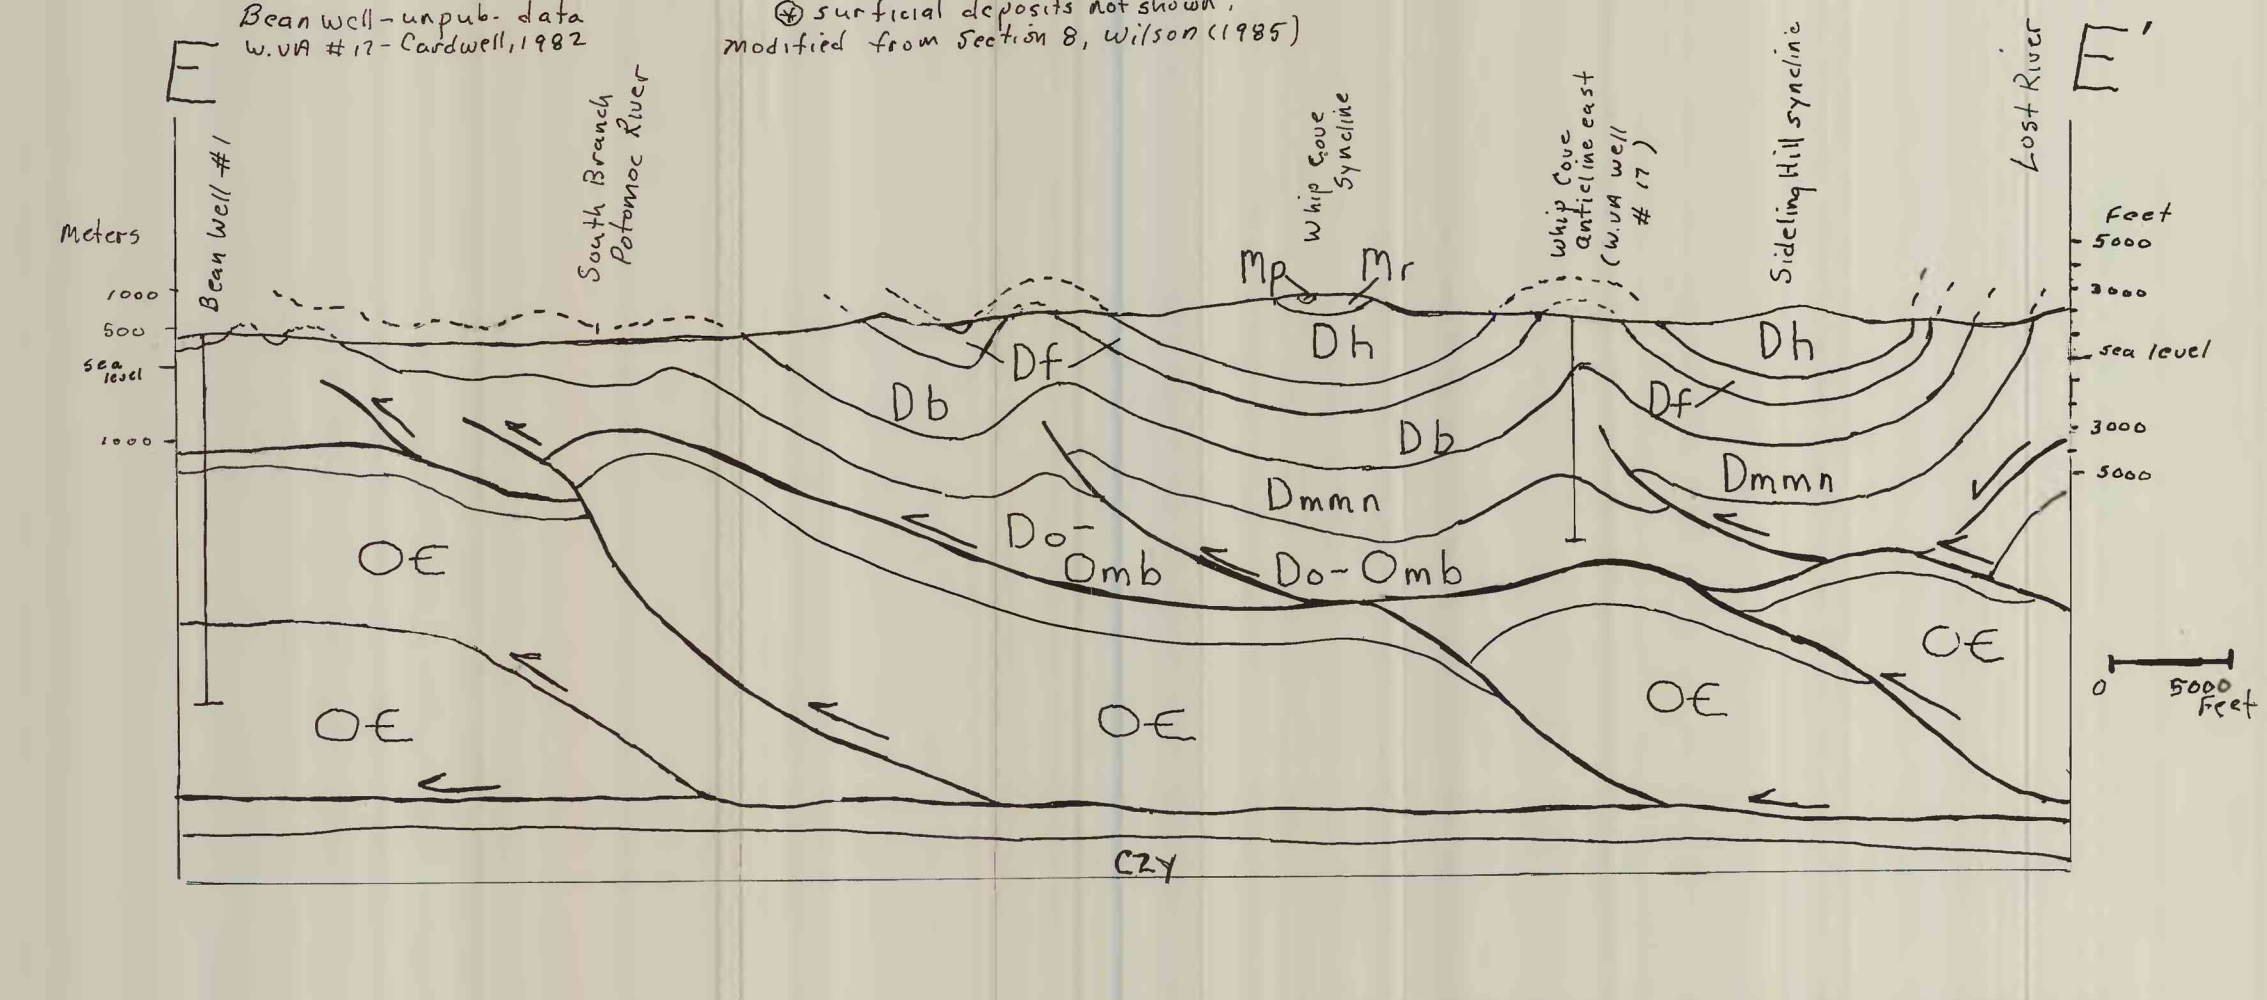 Bean well-unpub. data
W.VA #17-Cardwell, 1982
⊛ surficial deposits not shown,
modified from Section 8, Wilson (1985)
E
E'
Bean Well #1
South Branch
Potomac River
Whip Cove
Syncline
Whip Cove
anticline east
(W.VA well
# 17)
Sideling Hill syncline
Lost River
Meters
1000
500
Sea
level
1000
Feet
5000
3000
Sea level
3000
5000
Mp
Mr
Dh
Dh
Df
Df
Db
Db
Dmmn
Dmmn
Do-
Omb
Do-Omb
OЄ
OЄ
OЄ
OЄ
OЄ
CZY
0
5000
Feet